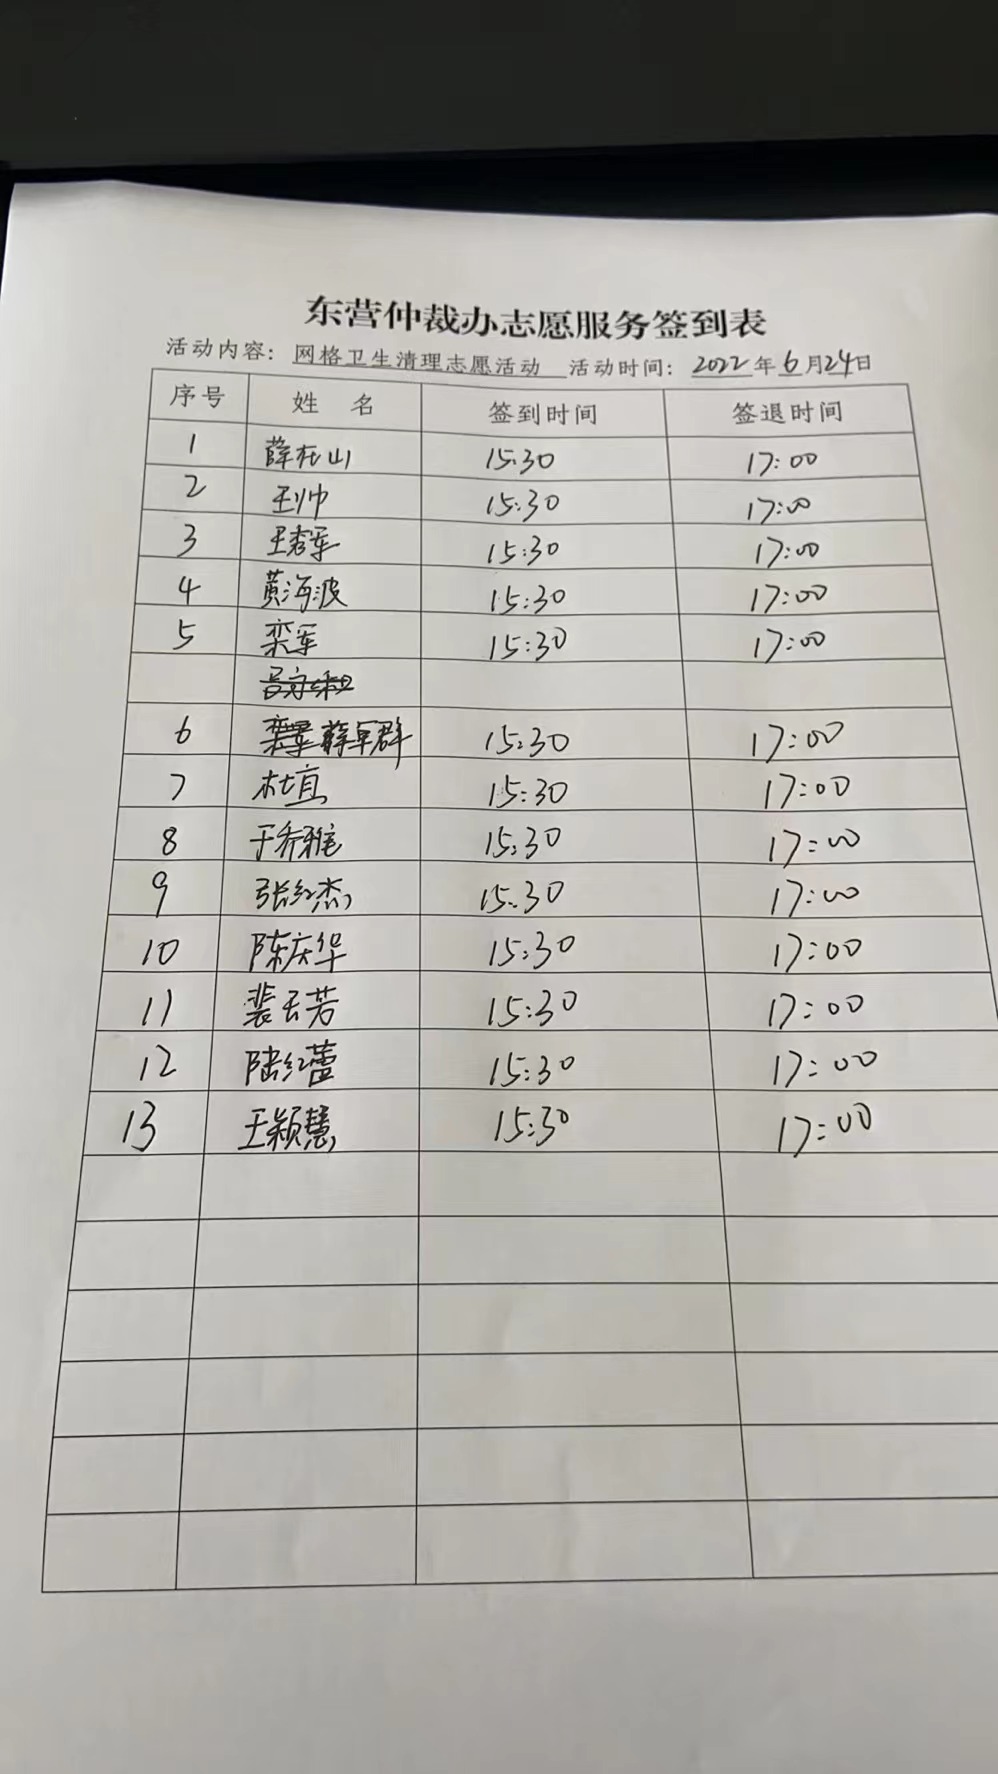 东营仲裁办志愿服务签到表
活动内容: 网格卫生清理志愿活动 活动时间: 2022年6月24日
序号 姓 名 签到时间 签退时间
1 薛在山 15:30 17:00
2 王帅 15:30 17:00
3 王秀军 15:30 17:00
4 黄海波 15:30 17:00
5 栾军 15:30 17:00
6 薛军群 15:30 17:00
7 杜宜 15:30 17:00
8 于乔雅 15:30 17:00
9 张红杰 15:30 17:00
10 陈庆华 15:30 17:00
11 裴云若 15:30 17:00
12 陆红蕾 15:30 17:00
13 王颖慧 15:30 17:00